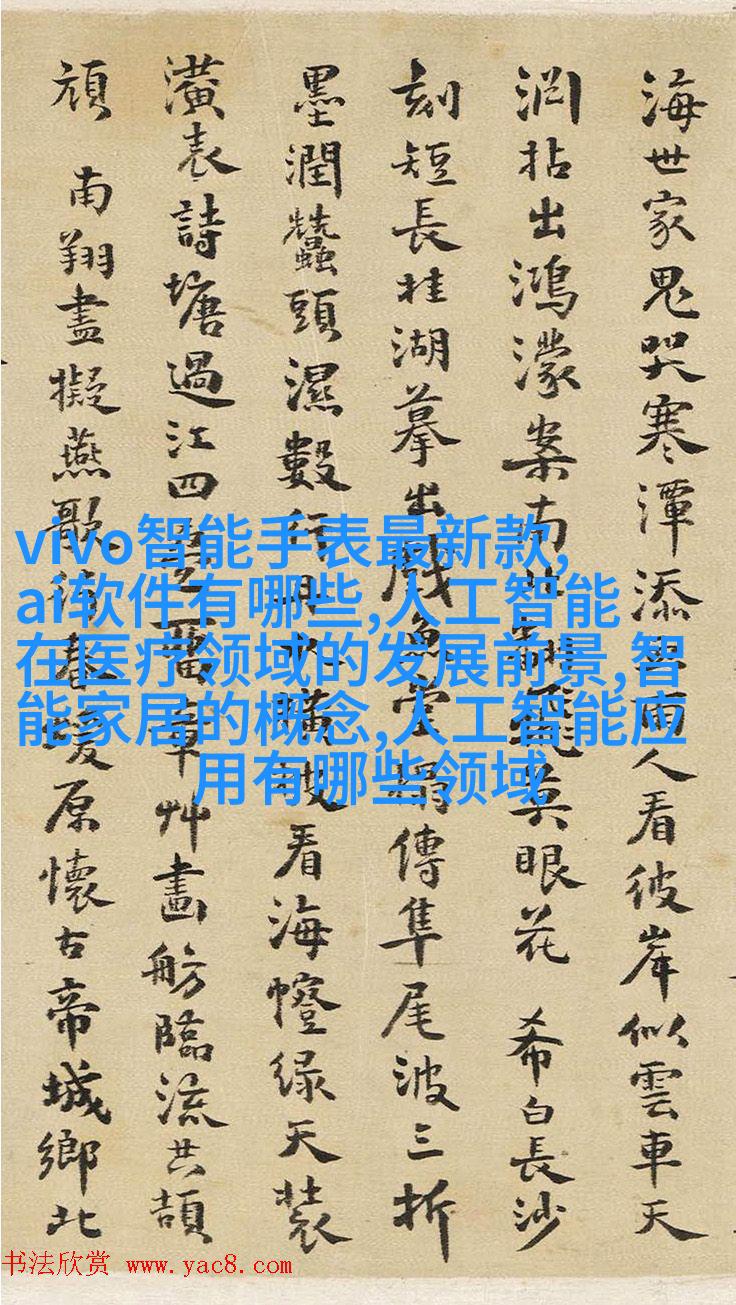 海世家鬼哭寒潭添雨人看彼岸似雲車天
渕拈出鴻濛案南飛英眼花 希白長沙
刻短長桂湖摹出戲魚堂傳隼尾波三折
墨潤蠶頭濕數行看海幢綠天裝
潢表詩塘過江四章艸畫舫臨流共頡
頏 南翔盡擬燕歌待春暖原懷古帝城鄉北
vivo智能手表最新款,
ai软件有哪些,人工智能
在医疗领域的发展前景,智
能家居的概念,人工智能应
用有哪些领域
书法欣赏 www.yac8.com